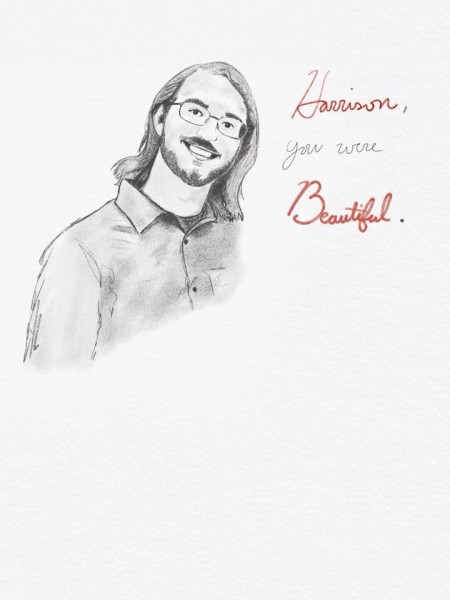 Harrison,
you were
Beautiful.